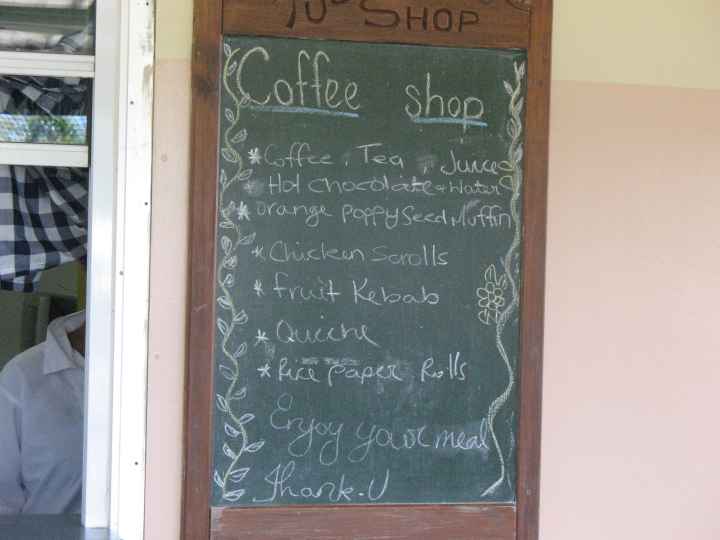 SHOP
Coffee shop
*Coffee, Tea, Juices
* Hot chocolate + Water
* orange poppy seed Muffin
* Chicken Scrolls
* fruit Kebab
* Quiche
* Rice paper Rolls
Enjoy your meal
Thank.U